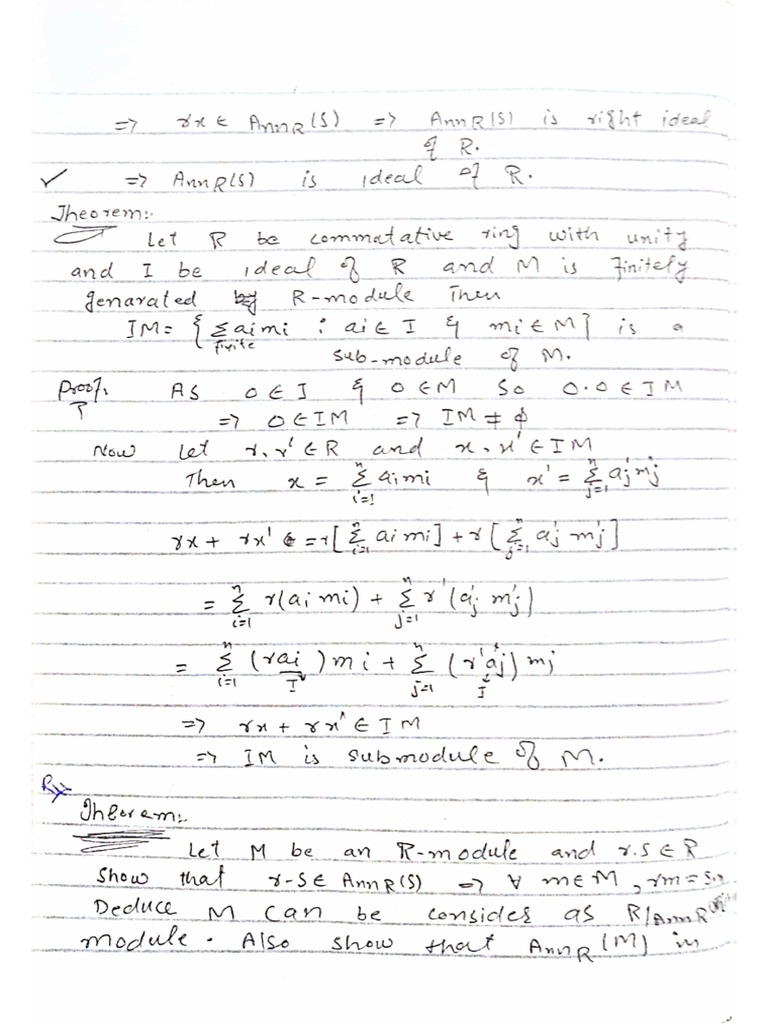 ⇒ rx ∈ AnnR(S) ⇒ AnnR(S) is right ideal
of R.
✓ ⇒ AnnR(S) is ideal of R.
Theorem:-
Let R be commatative ring with unity
and I be ideal of R and M is finitely
genarated by R-module Then
IM = { Σ aimi : ai ∈ I & mi ∈ M } is a
finite
sub-module of M.
Proof:- As 0 ∈ I & 0 ∈ M So 0.0 ∈ IM
⇒ 0 ∈ IM ⇒ IM ≠ ϕ
Now Let r, r' ∈ R and x, x' ∈ IM
Then x = Σⁿi=1 aimi & x' = Σⁿj=1 a'j m'j
rx + rx' = r[Σⁿi=1 ai mi] + r[Σⁿj=1 a'j m'j]
= Σⁿi=1 r(ai mi) + Σⁿj=1 r'(a'j m'j)
= Σⁿi=1 (rai) mi + Σⁿj=1 (r'a'j) mj
I I
⇒ rx + rx' ∈ IM
⇒ IM is submodule of M.
Theoram:-
Let M be an R-module and r.s ∈ R
Show that r-s ∈ AnnR(S) ⇒ ∀ m ∈ M, rm =
Deduce M can be consides as R/AnnR
module. Also show that AnnR(M) in